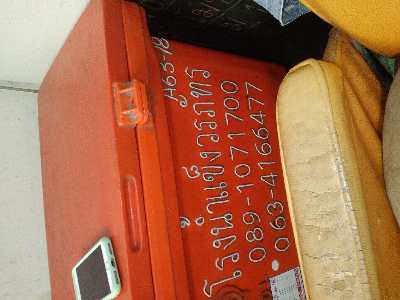 A63-18
โรงน้ำแข็งวรภัทร
089-1071700
063-4166477